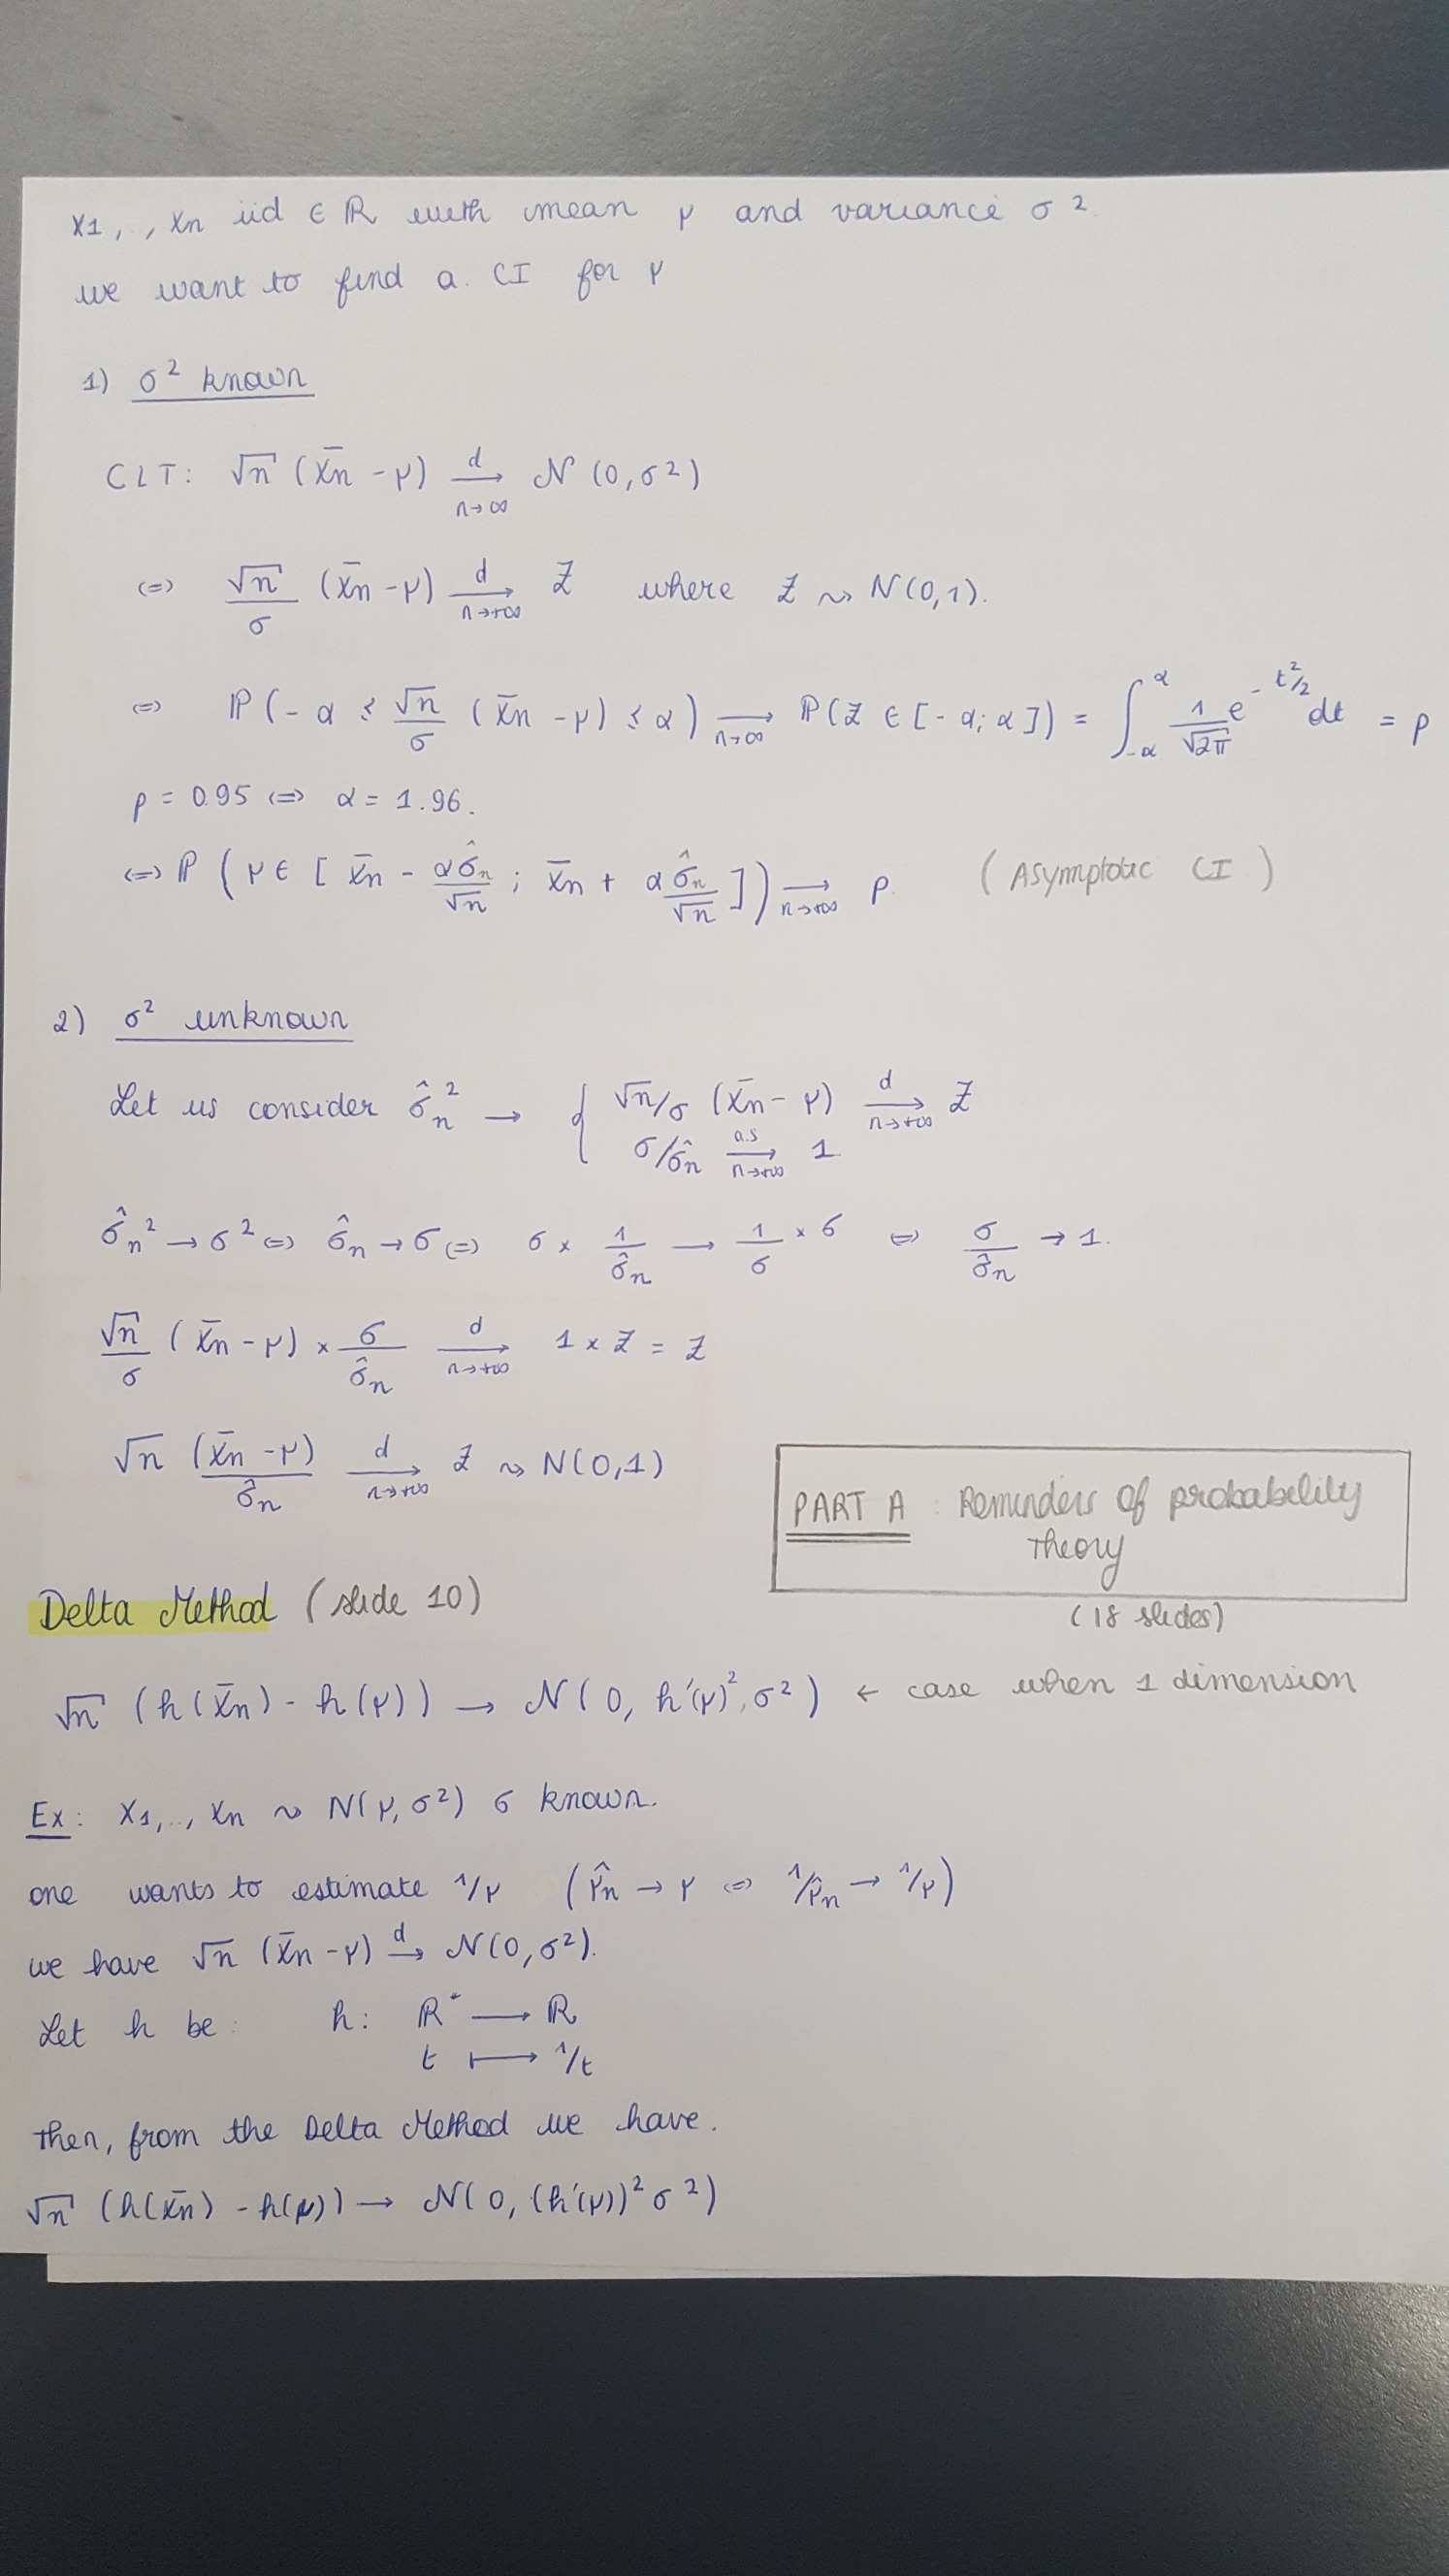 X1, .., Xn iid ∈ ℝ with mean μ and variance σ².
we want to find a CI for μ
1) σ² known
CLT: √n (X̄n - μ) →d n→∞ N(0, σ²)
(=) √n/σ (X̄n - μ) →d n→+∞ Z where Z ~ N(0,1).
(=) ℙ(-α ≤ √n/σ (X̄n - μ) ≤ α) → n→∞ ℙ(Z ∈ [-α; α]) = ∫_{-α}^{α} 1/√2π e^{-t²/2} dt = p
p = 0.95 (=) α = 1.96.
(=) ℙ(μ ∈ [X̄n - ασ̂n/√n ; X̄n + ασ̂n/√n]) → n→+∞ p. (Asymptotic CI)
2) σ² unknown
Let us consider σ̂n² → { √n/σ (X̄n - μ) →d n→+∞ Z
σ/σ̂n →a.s n→+∞ 1.
σ̂n² → σ² (=) σ̂n → σ (=) σ × 1/σ̂n → 1/σ × σ (=) σ/σ̂n → 1.
√n/σ (X̄n - μ) × σ/σ̂n →d n→+∞ 1 × Z = Z
√n (X̄n - μ)/σ̂n →d n→+∞ Z ~ N(0,1)
PART A : Reminders of probability
Theory
(18 slides)
Delta Method (slide 10)
√n (h(X̄n) - h(μ)) → N(0, h'(μ)², σ²) ← case when 1 dimension
Ex: X1, .., Xn ~ N(μ, σ²) σ known.
one wants to estimate 1/μ (μ̂n → μ (=) 1/μ̂n → 1/μ)
we have √n (X̄n - μ) →d N(0, σ²).
Let h be: h: ℝ* → ℝ
t ↦ 1/t
Then, from the Delta Method we have.
√n (h(X̄n) - h(μ)) → N(0, (h'(μ))² σ²)